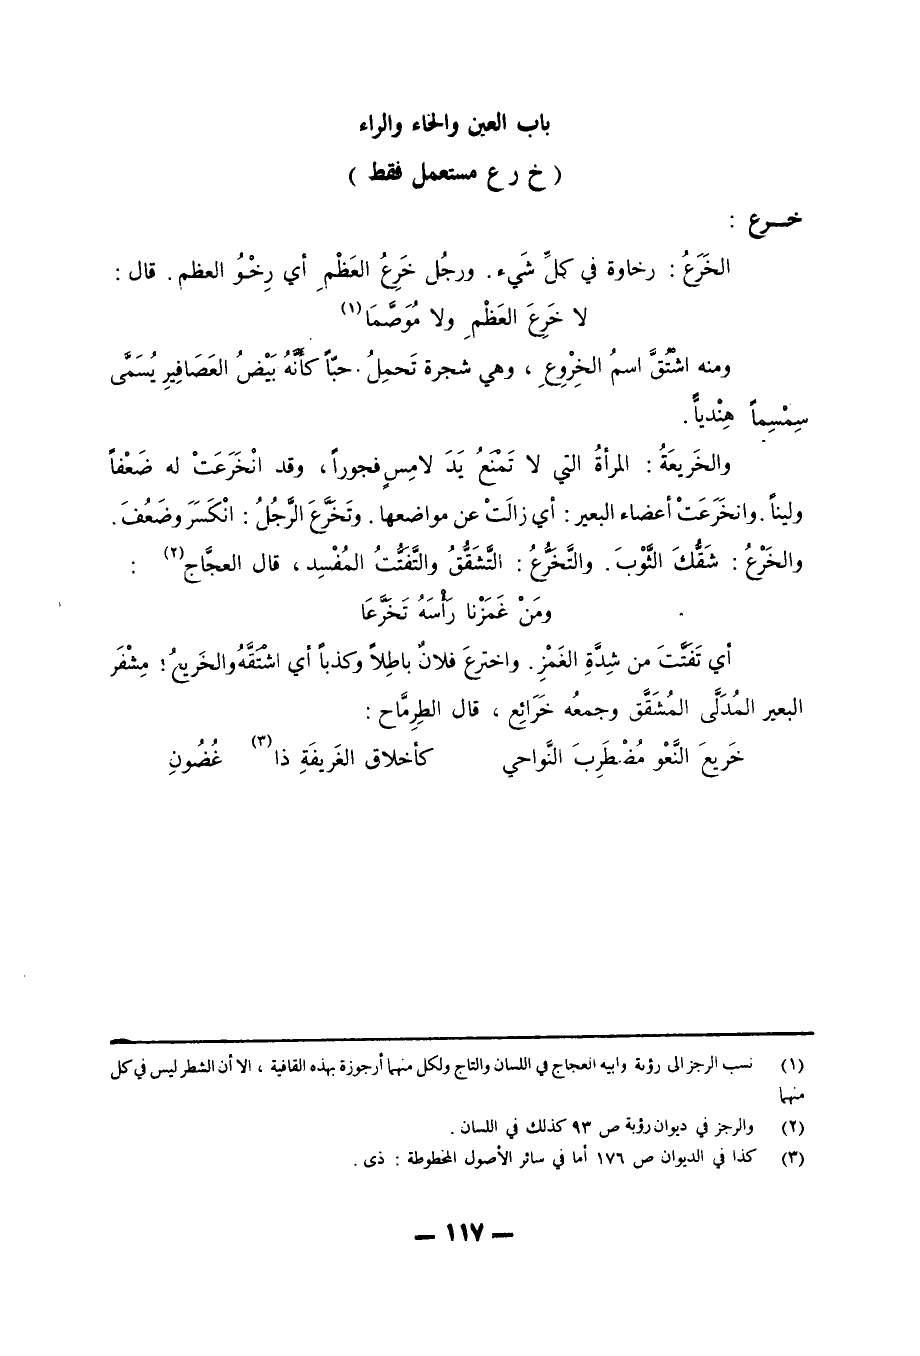 باب العين والخاء والراء
( خ ر ع مستعمل فقط )
خرع :
الخَرَعُ : رخاوة في كلِّ شَيء . ورجُل خَرِعُ العَظْمِ أي رِخْوُ العظم . قال :
لا خَرِعَ العَظْمِ ولا مُوَصَّمَا(١)
ومنه اشْتُقَّ اسمُ الخِرْوِعِ ، وهي شجرة تَحمِلُ حبّاً كأنَّهُ بَيْضُ العَصَافِيرِ يُسَمَّى
سِمْسِماً هِنْدياًّ .
والخَرِيعَةُ : المرأةُ التي لا تَمْنَعُ يَدَ لامِسٍ فجوراً ، وقد انْخَرَعَتْ له ضَعْفاً
ولیناً . وانخَرَعَتْ أعضاء البعير : أي زالَتْ عن مواضعها . وتَخَرَّعَ الرَّجُلُ : انْكَسَرَ وضَعُفَ .
والخَرْعُ : شَقُّكَ الثَّوْبَ . والتَّخَرُّعُ : التَّشَقُّقُ والتَّفَتُّتُ المُفْسِد ، قال العجَّاج(٢) :
ومَنْ غَمَزْنا رَأْسَهُ تَخَرَّعَا
أي تَفَتَّتَ من شِدَّةِ الغَمْزِ . واخترعَ فلانٌ باطِلاً وكذباً أي اشتَقَّهُ والخَرِيعُ : مِشْفَر
البعير المُدَلَّى المُشَقَّق وجمعُه خَرَائِع ، قال الطِرِمَّاح :
خَرِيعَ النَّعْوِ مُضْطَرِبَ النَّواحي كأخلاق الغَرِيفَةِ ذا(٣) غُضُونِ
(١) نسب الرجز الى رؤبة وابيه العجاج في اللسان والتاج ولكل منهما أرجوزة بهذه القافية ، الا أن الشطر ليس في كل
منهما
(٢) والرجز في ديوان رؤبة ص ٩٣ كذلك في اللسان .
(٣) كذا في الديوان ص ١٧٦ أما في سائر الأصول المخطوطة : ذى .
— ١١٧ —